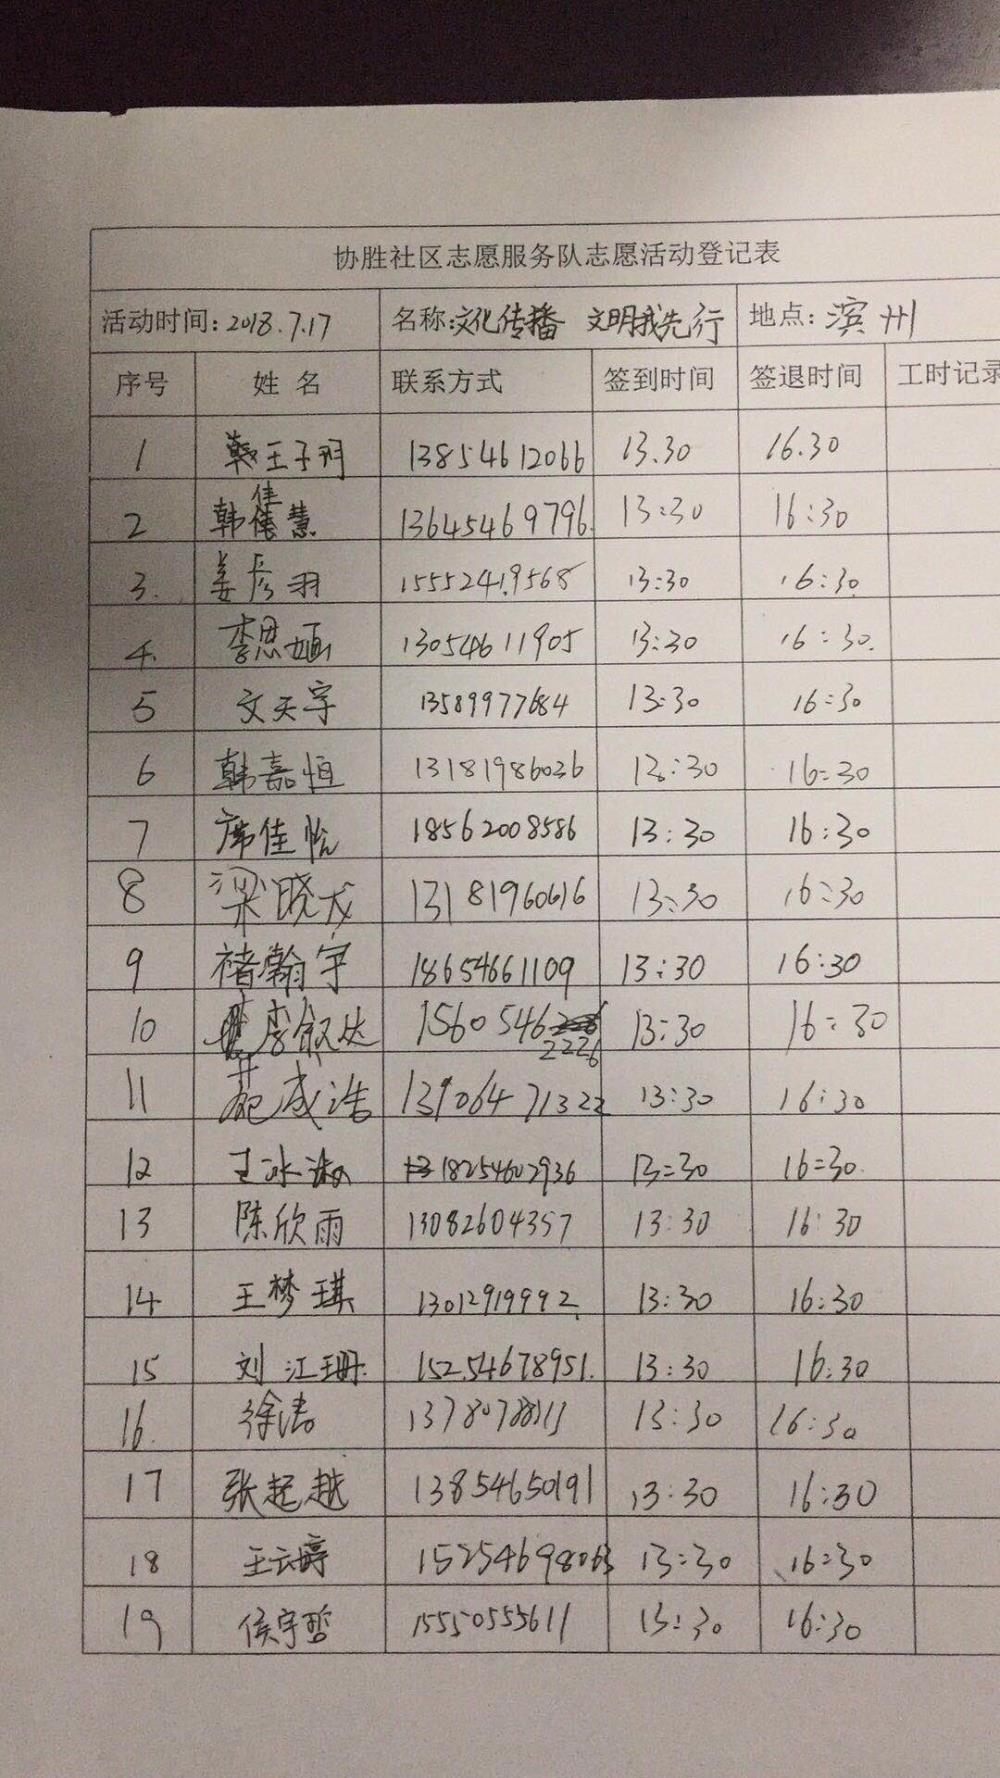 协胜社区志愿服务队志愿活动登记表
活动时间:2018.7.17 名称:文化传播 文明我先行 地点:滨州
序号 姓名 联系方式 签到时间 签退时间 工时记录
1 韩王子玥 13854612066 13.30 16.30
2 韩佳慧 13645469796 13:30 16:30
3. 姜彦羽 15552419568 13:30 16:30
4. 李思 13054611905 13:30 16:30.
5 文天宇 13589977684 13:30 16:30
6 韩嘉恒 13181986036 13:30 16:30
7 席佳怡 18562008586 13:30 16:30
8 梁晓龙 13181960616 13:30 16:30
9 褚瀚宇 18654661109 13:30 16:30
10 李叙达 15605462226 13:30 16:30
11 苑成浩 13:30 16:30
12 王冰淑 18254602936 13:30 16:30.
13 陈欣雨 13082604357 13:30 16:30
14 王梦琪 13012919992 13:30 16:30
15 刘江珊 15254678951. 13:30 16:30
16. 徐涛 13:30 16:30
17 张起越 13854650191 13:30 16:30
18 王云婷 15254698063 13:30 16:30
19 侯宇哲 15550555611 13:30 16:30